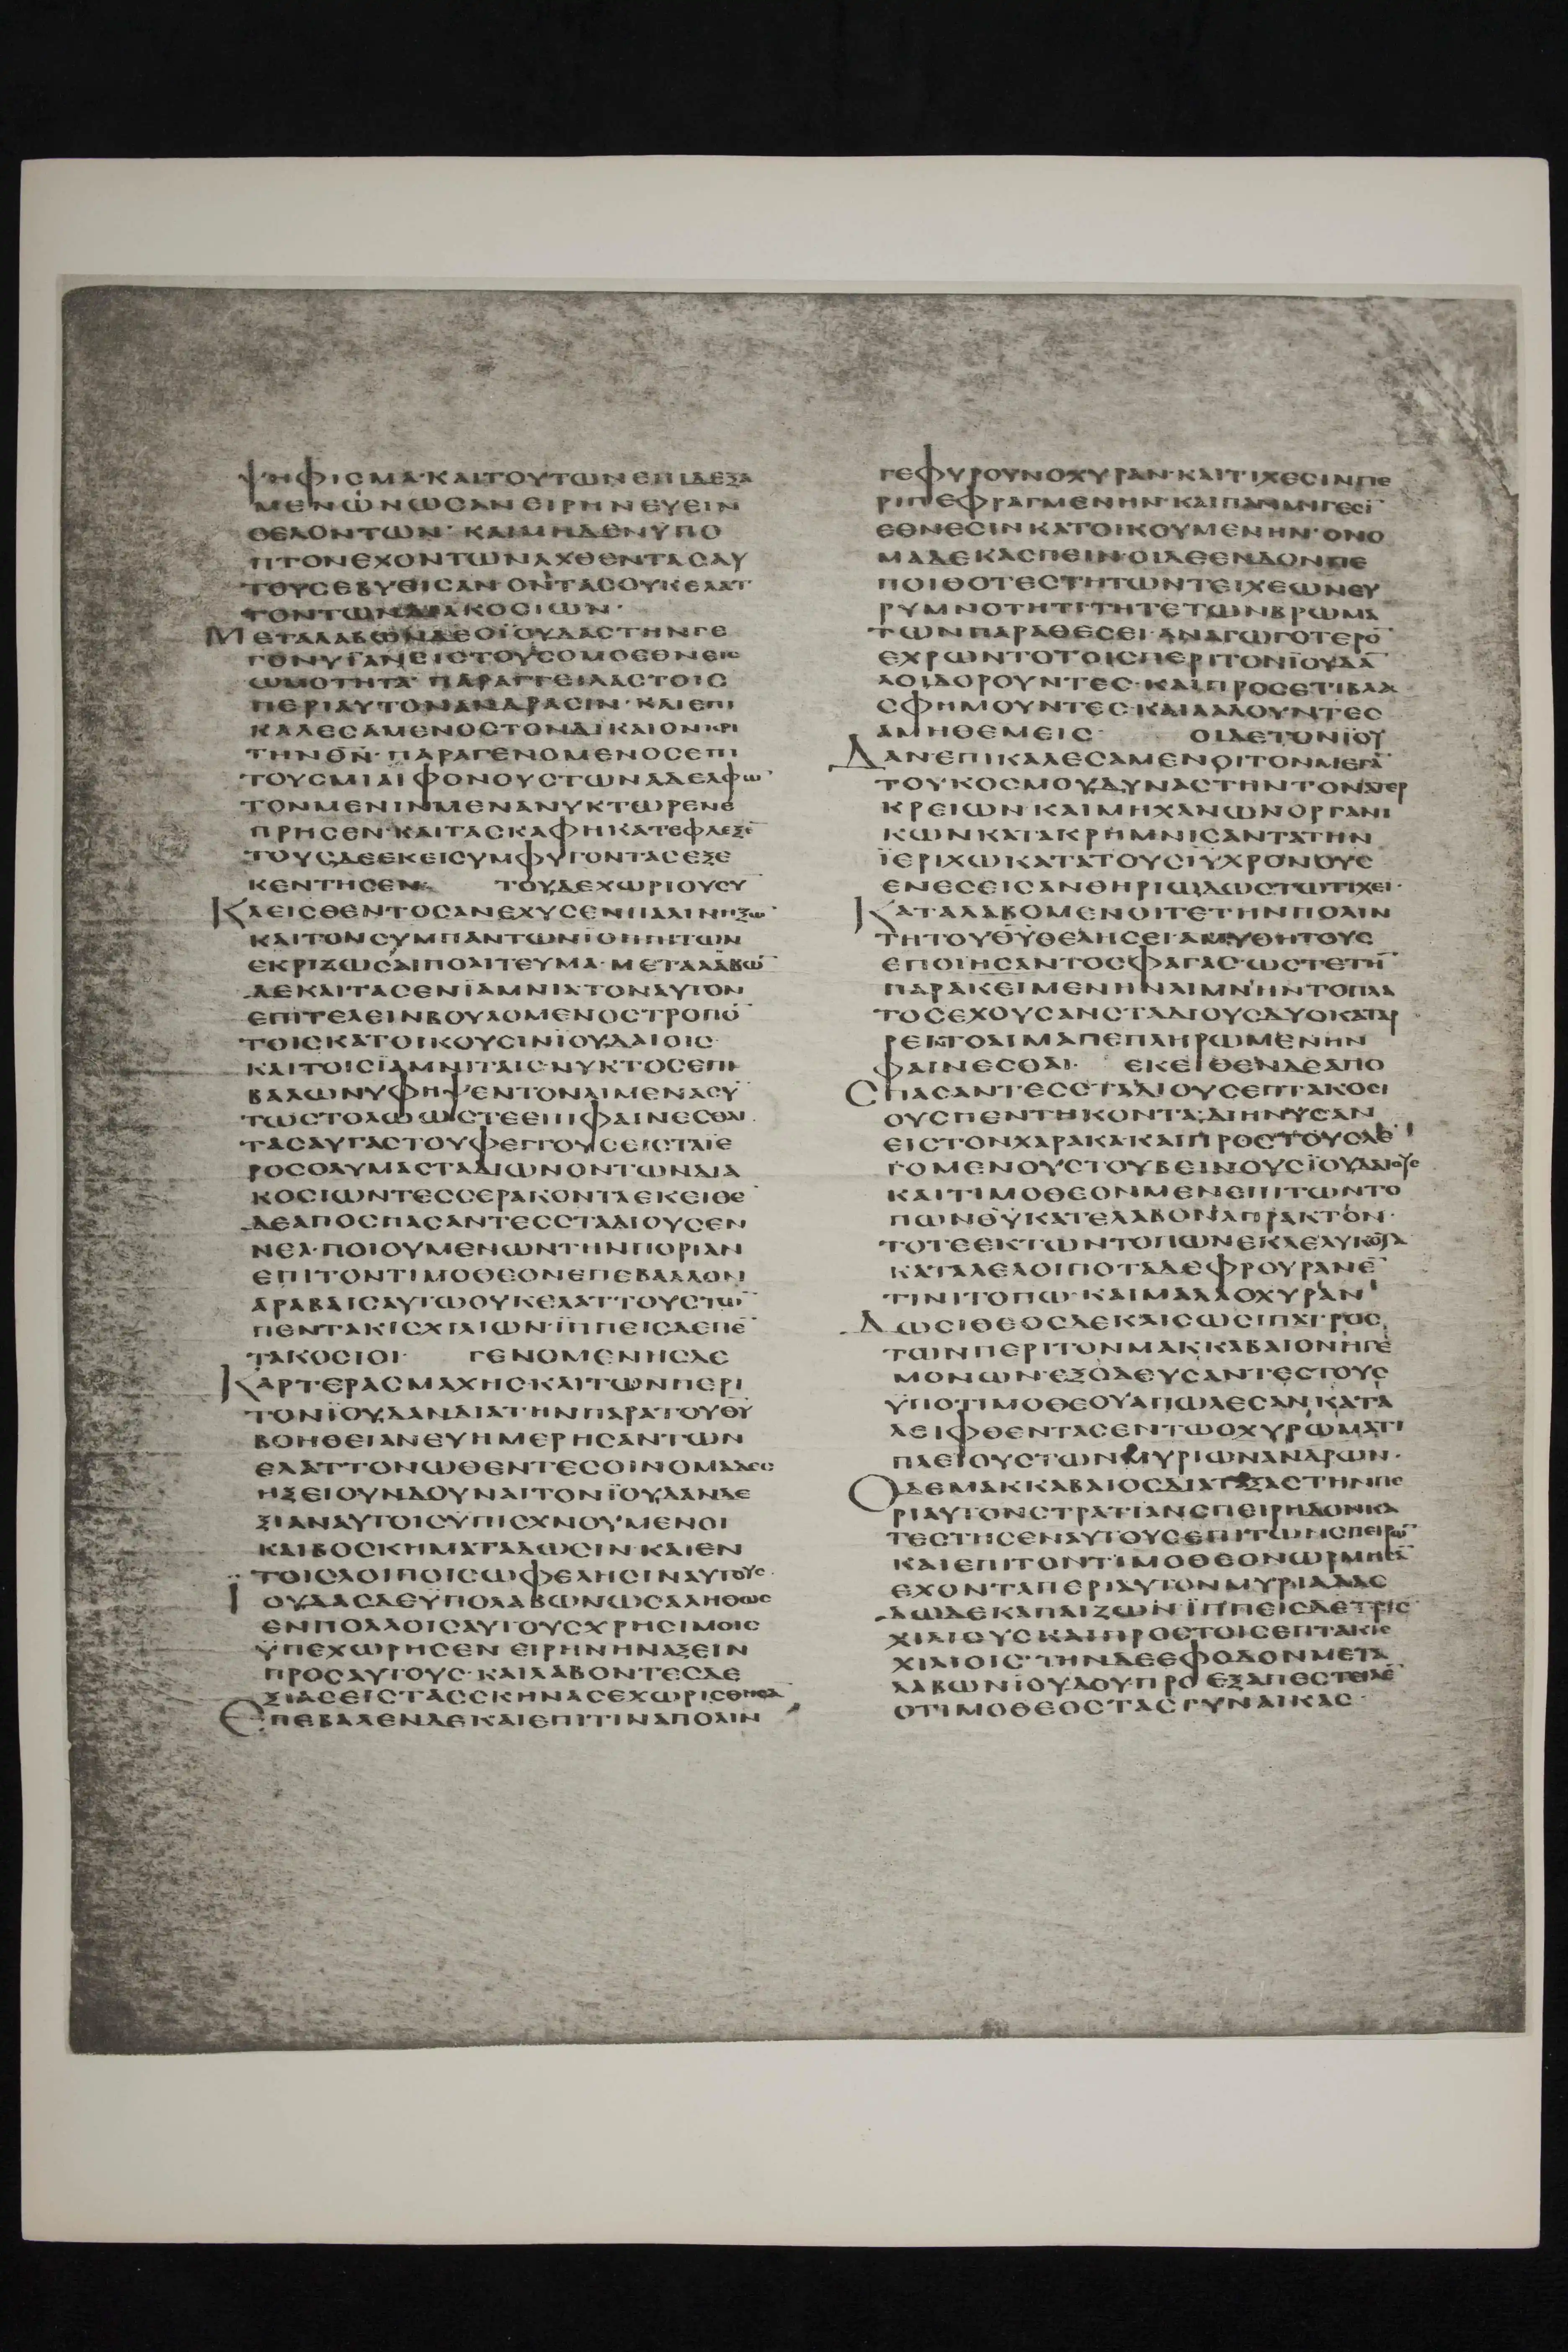 ΨΗΦΙϹΜΑ·ΚΑΙΤΟΥΤΩΝΕΠΙΔΕΞΑ
ΜΕΝΩΝΩϹΑΝΕΙΡΗΝΕΥΕΙΝ
ΘΕΛΟΝΤΩΝ· ΚΑΙΜΗΔΕΝΥΠΟ
ΠΤΟΝΕΧΟΝΤΩΝΑΧΘΕΝΤΑϹΑΥ
ΤΟΥϹΕΒΥΘΙϹΑΝ·ΟΝΤΑϹΟΥΚΕΛΑΤ
ΤΟΝΤΩΝΔΙΑΚΟϹΙΩΝ·
ΜΕΤΑΛΑΒΩΝΔΕΟΪΟΥΔΑϹΤΗΝΓΕ
ΓΟΝΥΙΑΝΕΙϹΤΟΥϹΟΜΟΕΘΝΕΙϹ
ΩΜΟΤΗΤΑ· ΠΑΡΑΓΓΕΙΛΑϹΤΟΙϹ
ΠΕΡΙΑΥΤΟΝΑΝΔΡΑϹΙΝ· ΚΑΙΕΠΙ
ΚΑΛΕϹΑΜΕΝΟϹΤΟΝΔΙΚΑΙΟΝΚΡΙ
ΤΗΝΘΝ̅· ΠΑΡΑΓΕΝΟΜΕΝΟϹΕΠΙ
ΤΟΥϹΜΙΑΙΦΟΝΟΥϹΤΩΝΑΔΕΛΦΩ̅
ΤΟΝΜΕΝΛΙΜΕΝΑΝΥΚΤΩΡΕΝΕ
ΠΡΗϹΕΝ·ΚΑΙΤΑϹΚΑΦΗΚΑΤΕΦΛΕΞΕ̅
ΤΟΥϹΔΕΕΚΕΙϹΥΜΦΥΓΟΝΤΑϹΕΞΕ
ΚΕΝΤΗϹΕΝ· ΤΟΥΔΕΧΩΡΙΟΥϹΥ
ΚΛΕΙϹΘΕΝΤΟϹΑΝΕΛΥϹΕΝΠΑΛΙΝΗΞΩ̅
ΚΑΙΤΟΝϹΥΜΠΑΝΤΩΝΙΟΠΠΙΤΩΝ
ΕΚΡΙΖΩϹΑΙΠΟΛΙΤΕΥΜΑ· ΜΕΤΑΛΑΒΩ̅
ΔΕΚΑΙΤΑϹΕΝΪΑΜΝΙΑΤΟΝΑΥΤΟΝ
ΕΠΙΤΕΛΕΙΝΒΟΥΛΟΜΕΝΟϹΤΡΟΠΟ̅
ΤΟΙϹΚΑΤΟΙΚΟΥϹΙΝΙΟΥΔΑΙΟΙϹ
ΚΑΙΤΟΙϹΙΑΜΝΙΤΑΙϹ·ΝΥΚΤΟϹΕΠΙ
ΒΑΛΩΝΥΦΗΨΕΝΤΟΝΛΙΜΕΝΑϹΥ̅
ΤΩϹΤΟΛΩΩϹΤΕΕΠΙΦΑΙΝΕϹΘΑΙ
ΤΑϹΑΥΓΑϹΤΟΥΦΕΓΓΟΥϹΕΙϹΤΑΙΕ
ΡΟϹΟΛΥΜΑϹΤΑΔΙΩΝΟΝΤΩΝΔΙΑ
ΚΟϹΙΩΝΤΕϹϹΕΡΑΚΟΝΤΑΕΚΕΙΘΕ̅
ΔΕΑΠΟϹΠΑϹΑΝΤΕϹϹΤΑΔΙΟΥϹΕΝ
ΝΕΑ·ΠΟΙΟΥΜΕΝΩΝΤΗΝΠΟΡΙΑΝ
ΕΠΙΤΟΝΤΙΜΟΘΕΟΝΕΠΕΒΑΛΛΟΝ
ΑΡΑΒΑΙϹΑΥΤΩΟΥΚΕΛΑΤΤΟΥϹΤΩ̅
ΠΕΝΤΑΚΙϹΧΙΛΙΩΝ·ΪΠΠΕΙϹΔΕΠΕ̅
ΤΑΚΟϹΙΟΙ· ΓΕΝΟΜΕΝΗϹΔΕ
ΚΑΡΤΕΡΑϹΜΑΧΗϹ·ΚΑΙΤΩΝΠΕΡΙ
ΤΟΝΪΟΥΔΑΝΔΙΑΤΗΝΠΑΡΑΤΟΥΘΥ̅
ΒΟΗΘΕΙΑΝΕΥΗΜΕΡΗϹΑΝΤΩΝ
ΕΛΑΤΤΟΝΩΘΕΝΤΕϹΟΙΝΟΜΑΔΕϹ
ΗΞΕΙΟΥΝΔΟΥΝΑΙΤΟΝΪΟΥΔΑΝΔΕ
ΞΙΑΝΑΥΤΟΙϹΥΠΙϹΧΝΟΥΜΕΝΟΙ
ΚΑΙΒΟϹΚΗΜΑΤΑΔΩϹΙΝ·ΚΑΙΕΝ
ΤΟΙϹΛΟΙΠΟΙϹΩΦΕΛΗϹΙΝΑΥΤΟΥϹ·
ΪΟΥΔΑϹΔΕΫΠΟΛΑΒΩΝΩϹΑΛΗΘΩϹ
ΕΝΠΟΛΛΟΙϹΑΥΤΟΥϹΧΡΗϹΙΜΟΙϹ
ΫΠΕΧΩΡΗϹΕΝ ΕΙΡΗΝΗΝΑΞΕΙΝ
ΠΡΟϹΑΥΤΟΥϹ·ΚΑΙΛΑΒΟΝΤΕϹΔΕ
ΞΙΑϹΕΙϹΤΑϹϹΚΗΝΑϹΕΧΩΡΙϹΘΗϹΑ̅
ΕΠΕΒΑΛΕΝΔΕΚΑΙΕΠΙΤΙΝΑΠΟΛΙΝ
ΓΕΦΥΡΟΥΝΟΧΥΡΑΝ·ΚΑΙΤΙΧΕϹΙΝΠΕ
ΡΙΠΕΦΡΑΓΜΕΝΗΝ·ΚΑΙΠΑΜΜΙΓΕϹΙ̅
ΕΘΝΕϹΙΝΚΑΤΟΙΚΟΥΜΕΝΗΝ·ΟΝΟ
ΜΑΔΕΚΑϹΠΕΙΝ·ΟΙΔΕΕΝΔΟΝΠΕ
ΠΟΙΘΟΤΕϹΤΗΤΩΝΤΕΙΧΕΩΝΕΥ
ΡΥΜΝΟΤΗΤΙΤΗΤΕΤΩΝΒΡΩΜΑ
ΤΩΝΠΑΡΑΘΕϹΕΙ·ΑΝΑΓΩΓΟΤΕΡΟ̅
ΕΧΡΩΝΤΟΤΟΙϹΠΕΡΙΤΟΝΪΟΥΔΑ̅
ΛΟΙΔΟΡΟΥΝΤΕϹ·ΚΑΙΠΡΟϹΕΤΙΒΛΑ
ϹΦΗΜΟΥΝΤΕϹ·ΚΑΙΛΑΛΟΥΝΤΕϹ
ΑΜΗΘΕΜΕΙϹ· ΟΙΔΕΤΟΝΙΟΥ
ΔΑΝ·ΕΠΙΚΑΛΕϹΑΜΕΝΟΙΤΟΝΜΕΓΑ̅
ΤΟΥΚΟϹΜΟΥΔΥΝΑϹΤΗΝΤΟΝΑΤΕΡ
ΚΡΕΙΩΝ·ΚΑΙΜΗΧΑΝΩΝΟΡΓΑΝΙ
ΚΩΝΚΑΤΑΚΡΗΜΝΙϹΑΝΤΑΤΗΝ
ΪΕΡΙΧΩΚΑΤΑΤΟΥϹΙΥΧΡΟΝΟΥϹ
ΕΝΕϹΕΙϹΑΝΘΗΡΙΩΔΩϹΤΩΤΙΧΕΙ·
ΚΑΤΑΛΑΒΟΜΕΝΟΙΤΕΤΗΝΠΟΛΙΝ
ΤΗΤΟΥΘΥ̅ΘΕΛΗϹΕΙ·ΑΜΥΘΗΤΟΥϹ
ΕΠΟΙΗϹΑΝΤΟϹΦΑΓΑϹ·ΩϹΤΕΤΗ̅
ΠΑΡΑΚΕΙΜΕΝΗΝΛΙΜΝΗΝΤΟΠΛΑ
ΤΟϹΕΧΟΥϹΑΝϹΤΑΔΙΟΥϹΔΥΟΚΑΤΑΡ
ΡΕΚΤΟΑΙΜΑΠΕΠΛΗΡΩΜΕΝΗΝ
ΦΑΙΝΕϹΘΑΙ· ΕΚΕΙΘΕΝΔΕΑΠΟ
ϹΠΑϹΑΝΤΕϹϹΤΑΔΙΟΥϹΕΠΤΑΚΟϹΙ
ΟΥϹΠΕΝΤΗΚΟΝΤΑ·ΔΙΗΝΥϹΑΝ
ΕΙϹΤΟΝΧΑΡΑΚΑ·ΚΑΙΠΡΟϹΤΟΥϹΛΕ
ΓΟΜΕΝΟΥϹΤΟΥΒΕΙΝΟΥϹΪΟΥΔΑΙΟΥϹ
ΚΑΙΤΙΜΟΘΕΟΝΜΕΝΕΠΙΤΩΝΤΟ
ΠΩΝΟΥΚΑΤΕΛΑΒΟΝΑΠΡΑΚΤΟΝ·
ΤΟΤΕΕΚΤΩΝΤΟΠΩΝΕΚΛΕΛΥΚΟΤΑ
ΚΑΤΑΛΕΛΟΙΠΟΤΑΔΕΦΡΟΥΡΑΝΕ̅
ΤΙΝΙΤΟΠΩ·ΚΑΙΜΑΛΛΟΧΥΡΑΝ
ΔΩϹΙΘΕΟϹΔΕΚΑΙϹΩϹΙΠΑΤΡΟϹ
ΤΩΝΠΕΡΙΤΟΝΜΑΚΚΑΒΑΙΟΝΗΓΕ
ΜΟΝΩΝ·ΕΞΟΔΕΥϹΑΝΤΕϹΤΟΥϹ
ΫΠΟΤΙΜΟΘΕΟΥΑΠΩΛΕϹΑΝΚΑΤΑ
ΛΕΙΦΘΕΝΤΑϹΕΝΤΩΟΧΥΡΩΜΑΤΙ
ΠΛΕΙΟΥϹΤΩΝΜΥΡΙΩΝΑΝΔΡΩΝ·
ΟΔΕΜΑΚΚΑΒΑΙΟϹΔΙΑΤΑΞΑϹΤΗΝΠΕ
ΡΙΑΥΤΟΝϹΤΡΑΤΙΑΝϹΠΕΙΡΗΔΟΝΚΑ
ΤΕϹΤΗϹΕΝΑΥΤΟΥϹΕΠΙΤΩΝϹΠΕΙΡΩ̅
ΚΑΙΕΠΙΤΟΝΤΙΜΟΘΕΟΝΩΡΜΗϹΕ̅
ΕΧΟΝΤΑΠΕΡΙΑΥΤΟΝΜΥΡΙΑΔΑϹ
ΔΩΔΕΚΑΠΑΙΖΩΝ·ΪΠΠΕΙϹΔΕΤΡΙϹ
ΧΙΛΙΟΥϹΚΑΙΠΡΟϹΤΟΙϹΕΠΤΑΚΙϹ
ΧΙΛΙΟΙϹ·ΤΗΝΔΕΕΦΟΔΟΝΜΕΤΑ
ΛΑΒΩΝΙΟΥΔΟΥ·ΠΡΟΕΞΑΠΕϹΤΕΙΛΕ̅
ΟΤΙΜΟΘΕΟϹΤΑϹΓΥΝΑΙΚΑϹ·